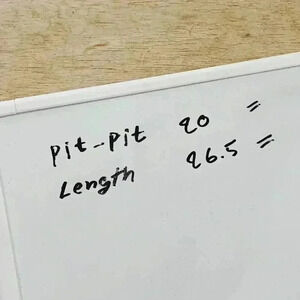 Pit-Pit 20 "
Length 26.5 "